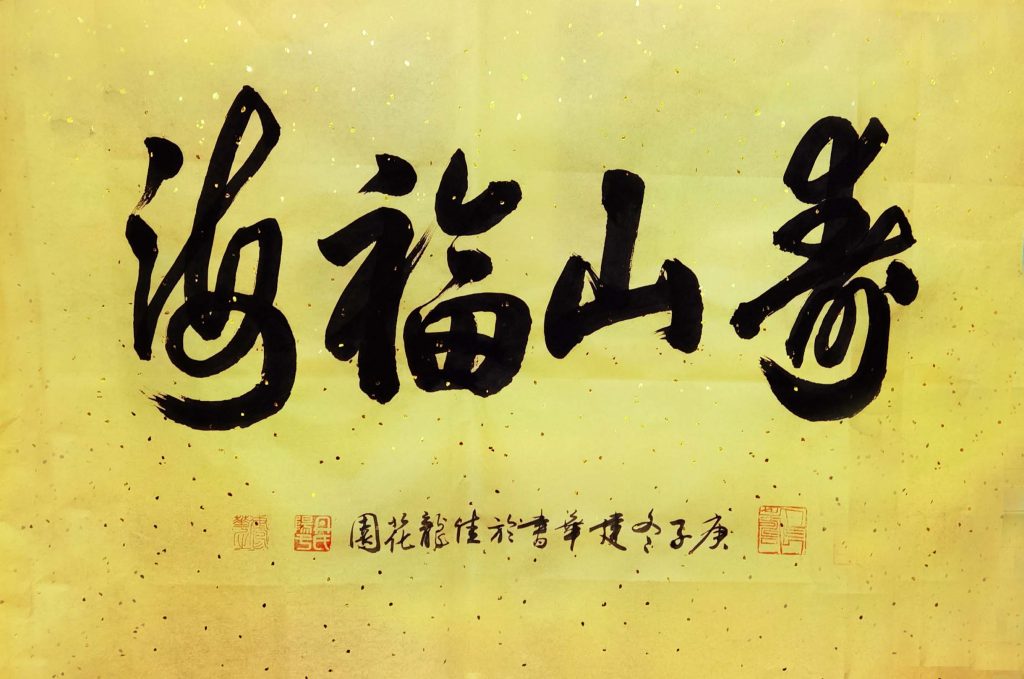 寿山福海
庚子冬建華書於佳龍花園